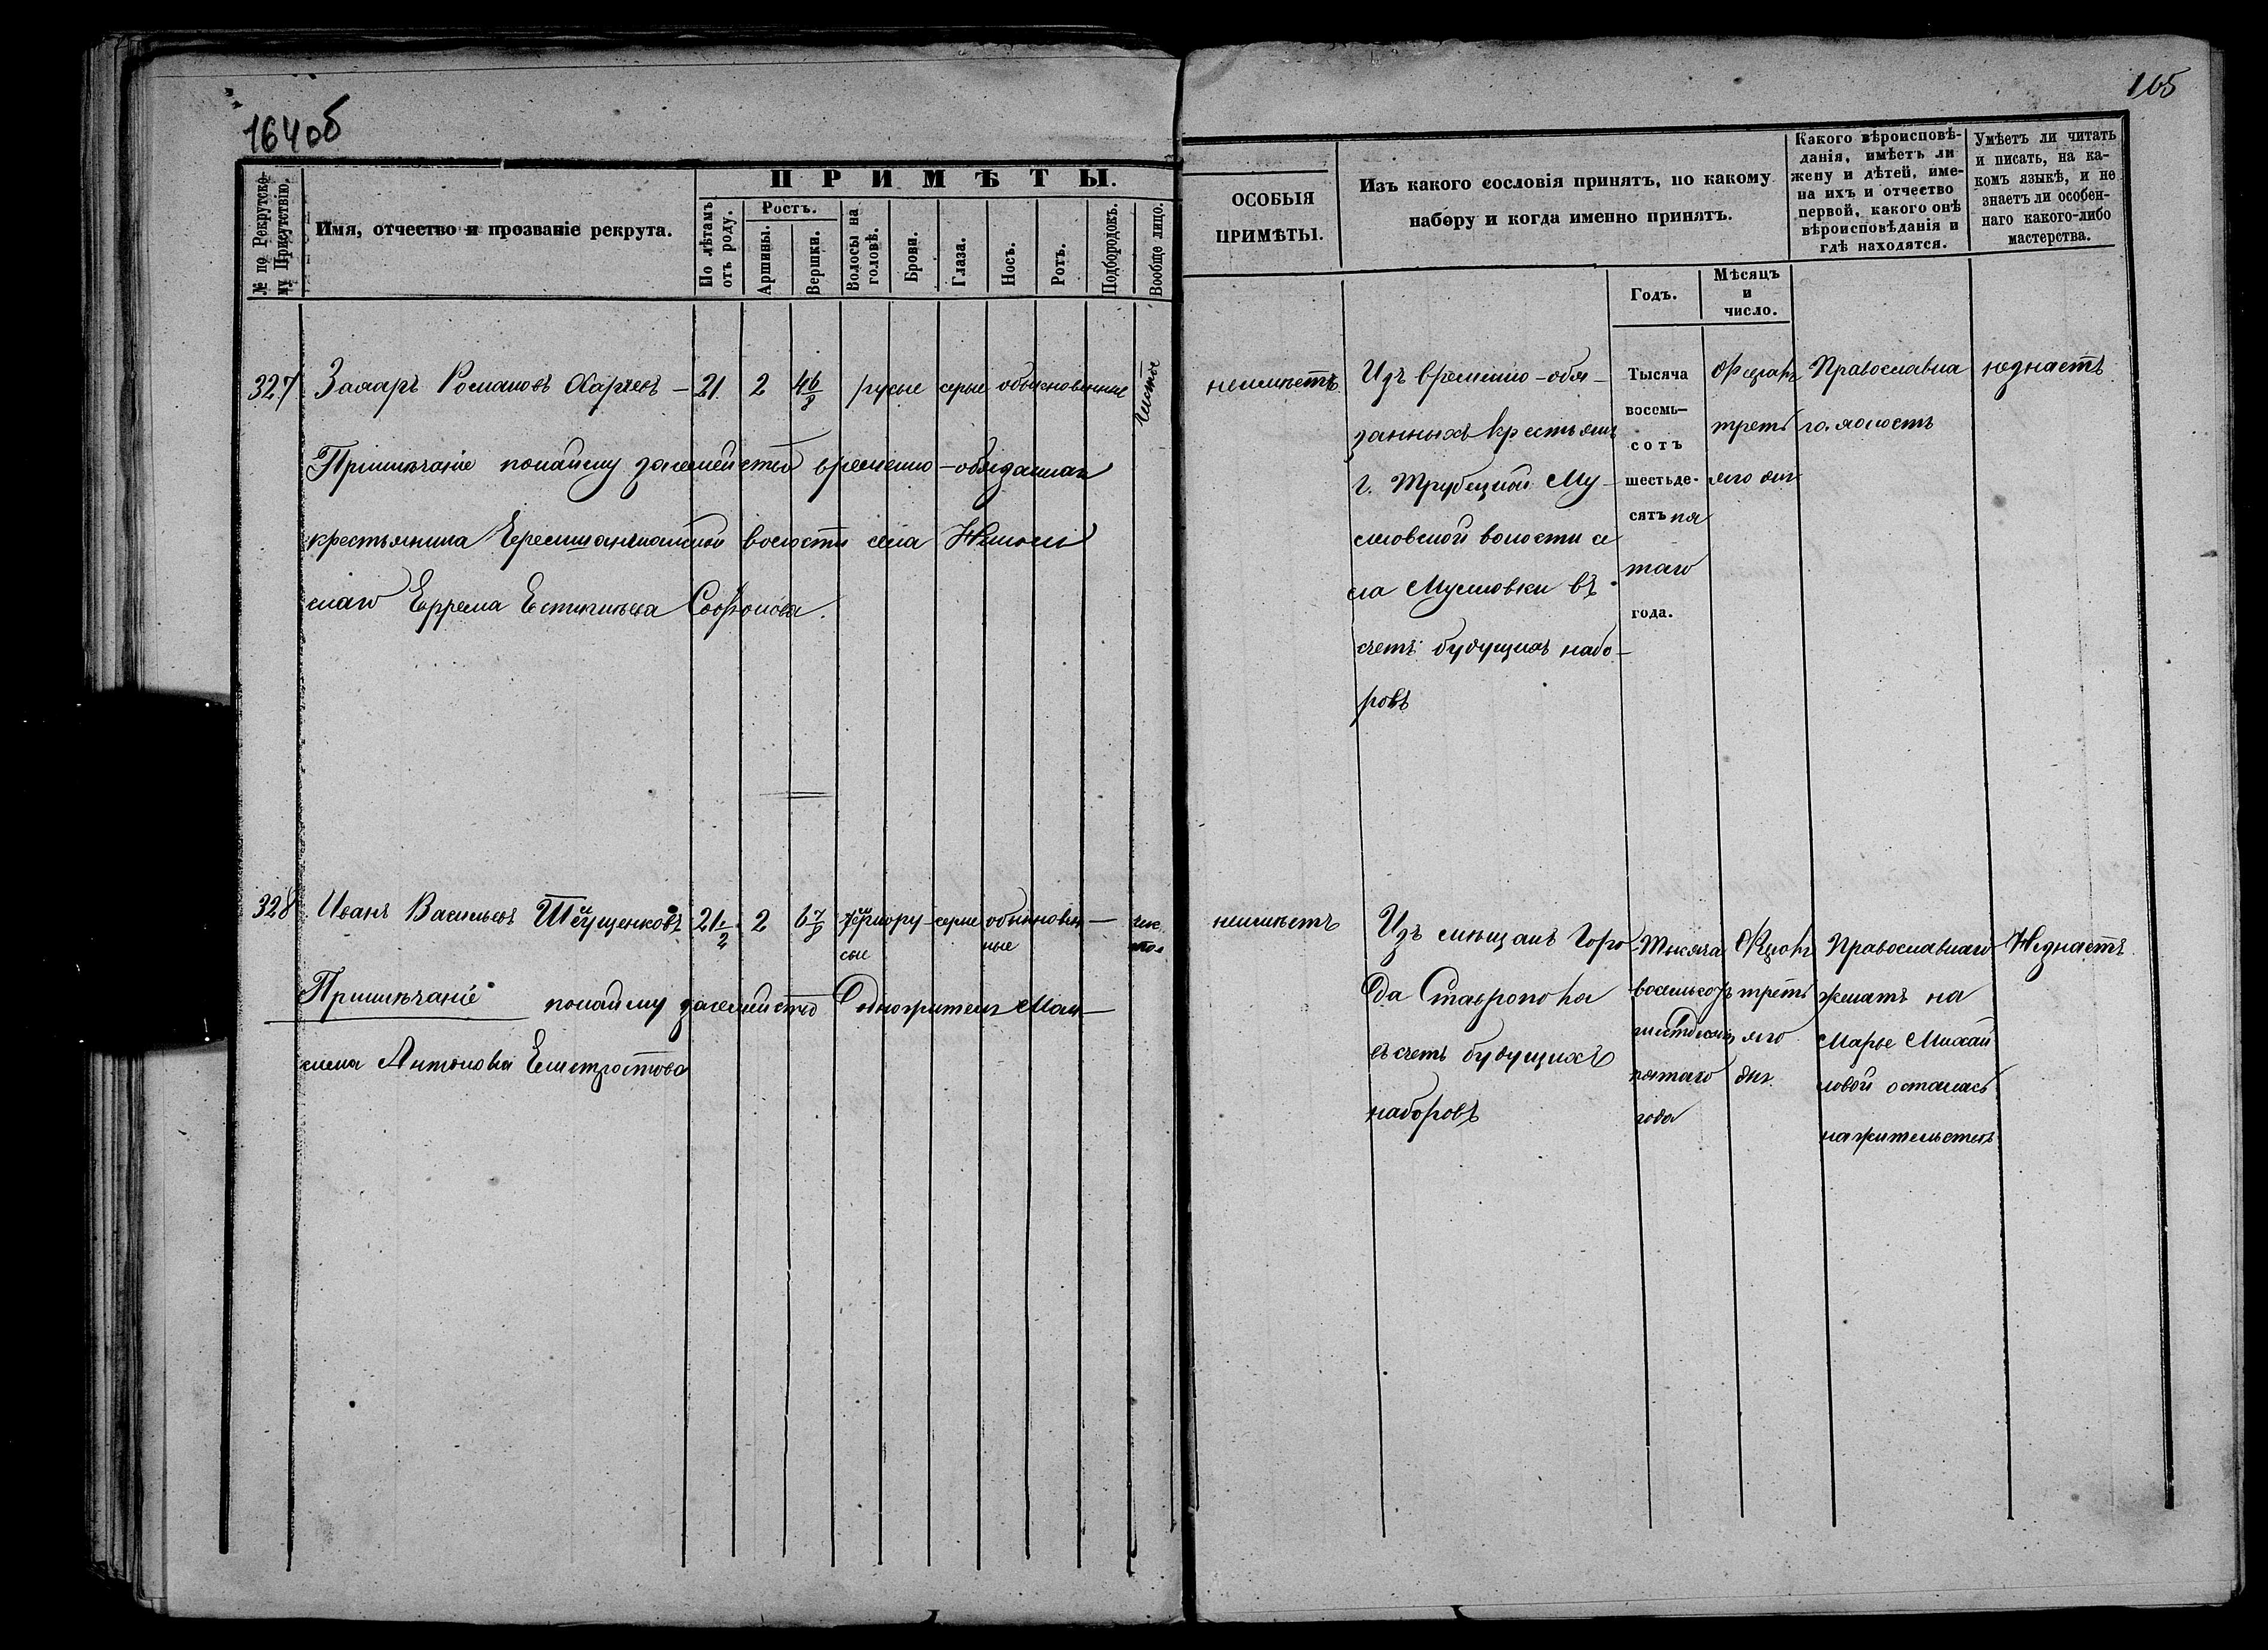 164об
№ по Рекрутско-
му Присутствію.
Имя, отчество и прозваніе рекрута.
ПРИМѢТЫ.
По лѣтамъ
отъ роду.
Ростъ.
Аршины.
Вершки.
Волосы на
головѣ.
Брови.
Глаза.
Носъ.
Ротъ.
Подбородокъ.
Вообще лицо.
327 Романовъ — 21 2 4 6/8 русые серые обыкновенные чистое
Примѣчаніе понайму засемейство временно-обязаннаго
крестьянина волости села
Софронова.
328 Иванъ Васильевъ 21 1/2 2 6 7/8 серые обыкновен—
сые ные
чис
тое
Примѣчаніе понайму засемейство
Антонова
165
ОСОБЫЯ
ПРИМѢТЫ.
Изъ какого сословія принятъ, по какому
набору и когда именно принятъ.
Годъ.
Мѣсяцъ
и
число.
Какого вѣроисповѣ-
данія, имѣетъ ли
жену и дѣтей, име-
на ихъ и отчество
первой, какого онѣ
вѣроисповѣданія и
гдѣ находятся.
Умѣетъ ли читать
и писать, на ка-
комъ языкѣ, и не
знаетъ ли особен-
наго какого-либо
мастерства.
неимѣетъ
Изъ временно-обя-
занныхъ крестьянъ
г. Трубецкой Му-
словской волости се
ла Мусловки въ
счетъ будущихъ набо-
ровъ
Тысяча
восемь-
сотъ
шестьде-
сятъ пя
таго
года.
трет
яго дня
Православна
го. холостъ
незнаетъ
неимѣетъ
Изъ мѣщанъ Горо
да Ставрополя
въ счетъ будущихъ
наборовъ
Тысяча
восемьсотъ
шестьдесятъ
пятаго
года
трет
яго
дня
Православнаго
женатъ на
Марье Михай
ловой осталась
на жительстве
Незнаетъ